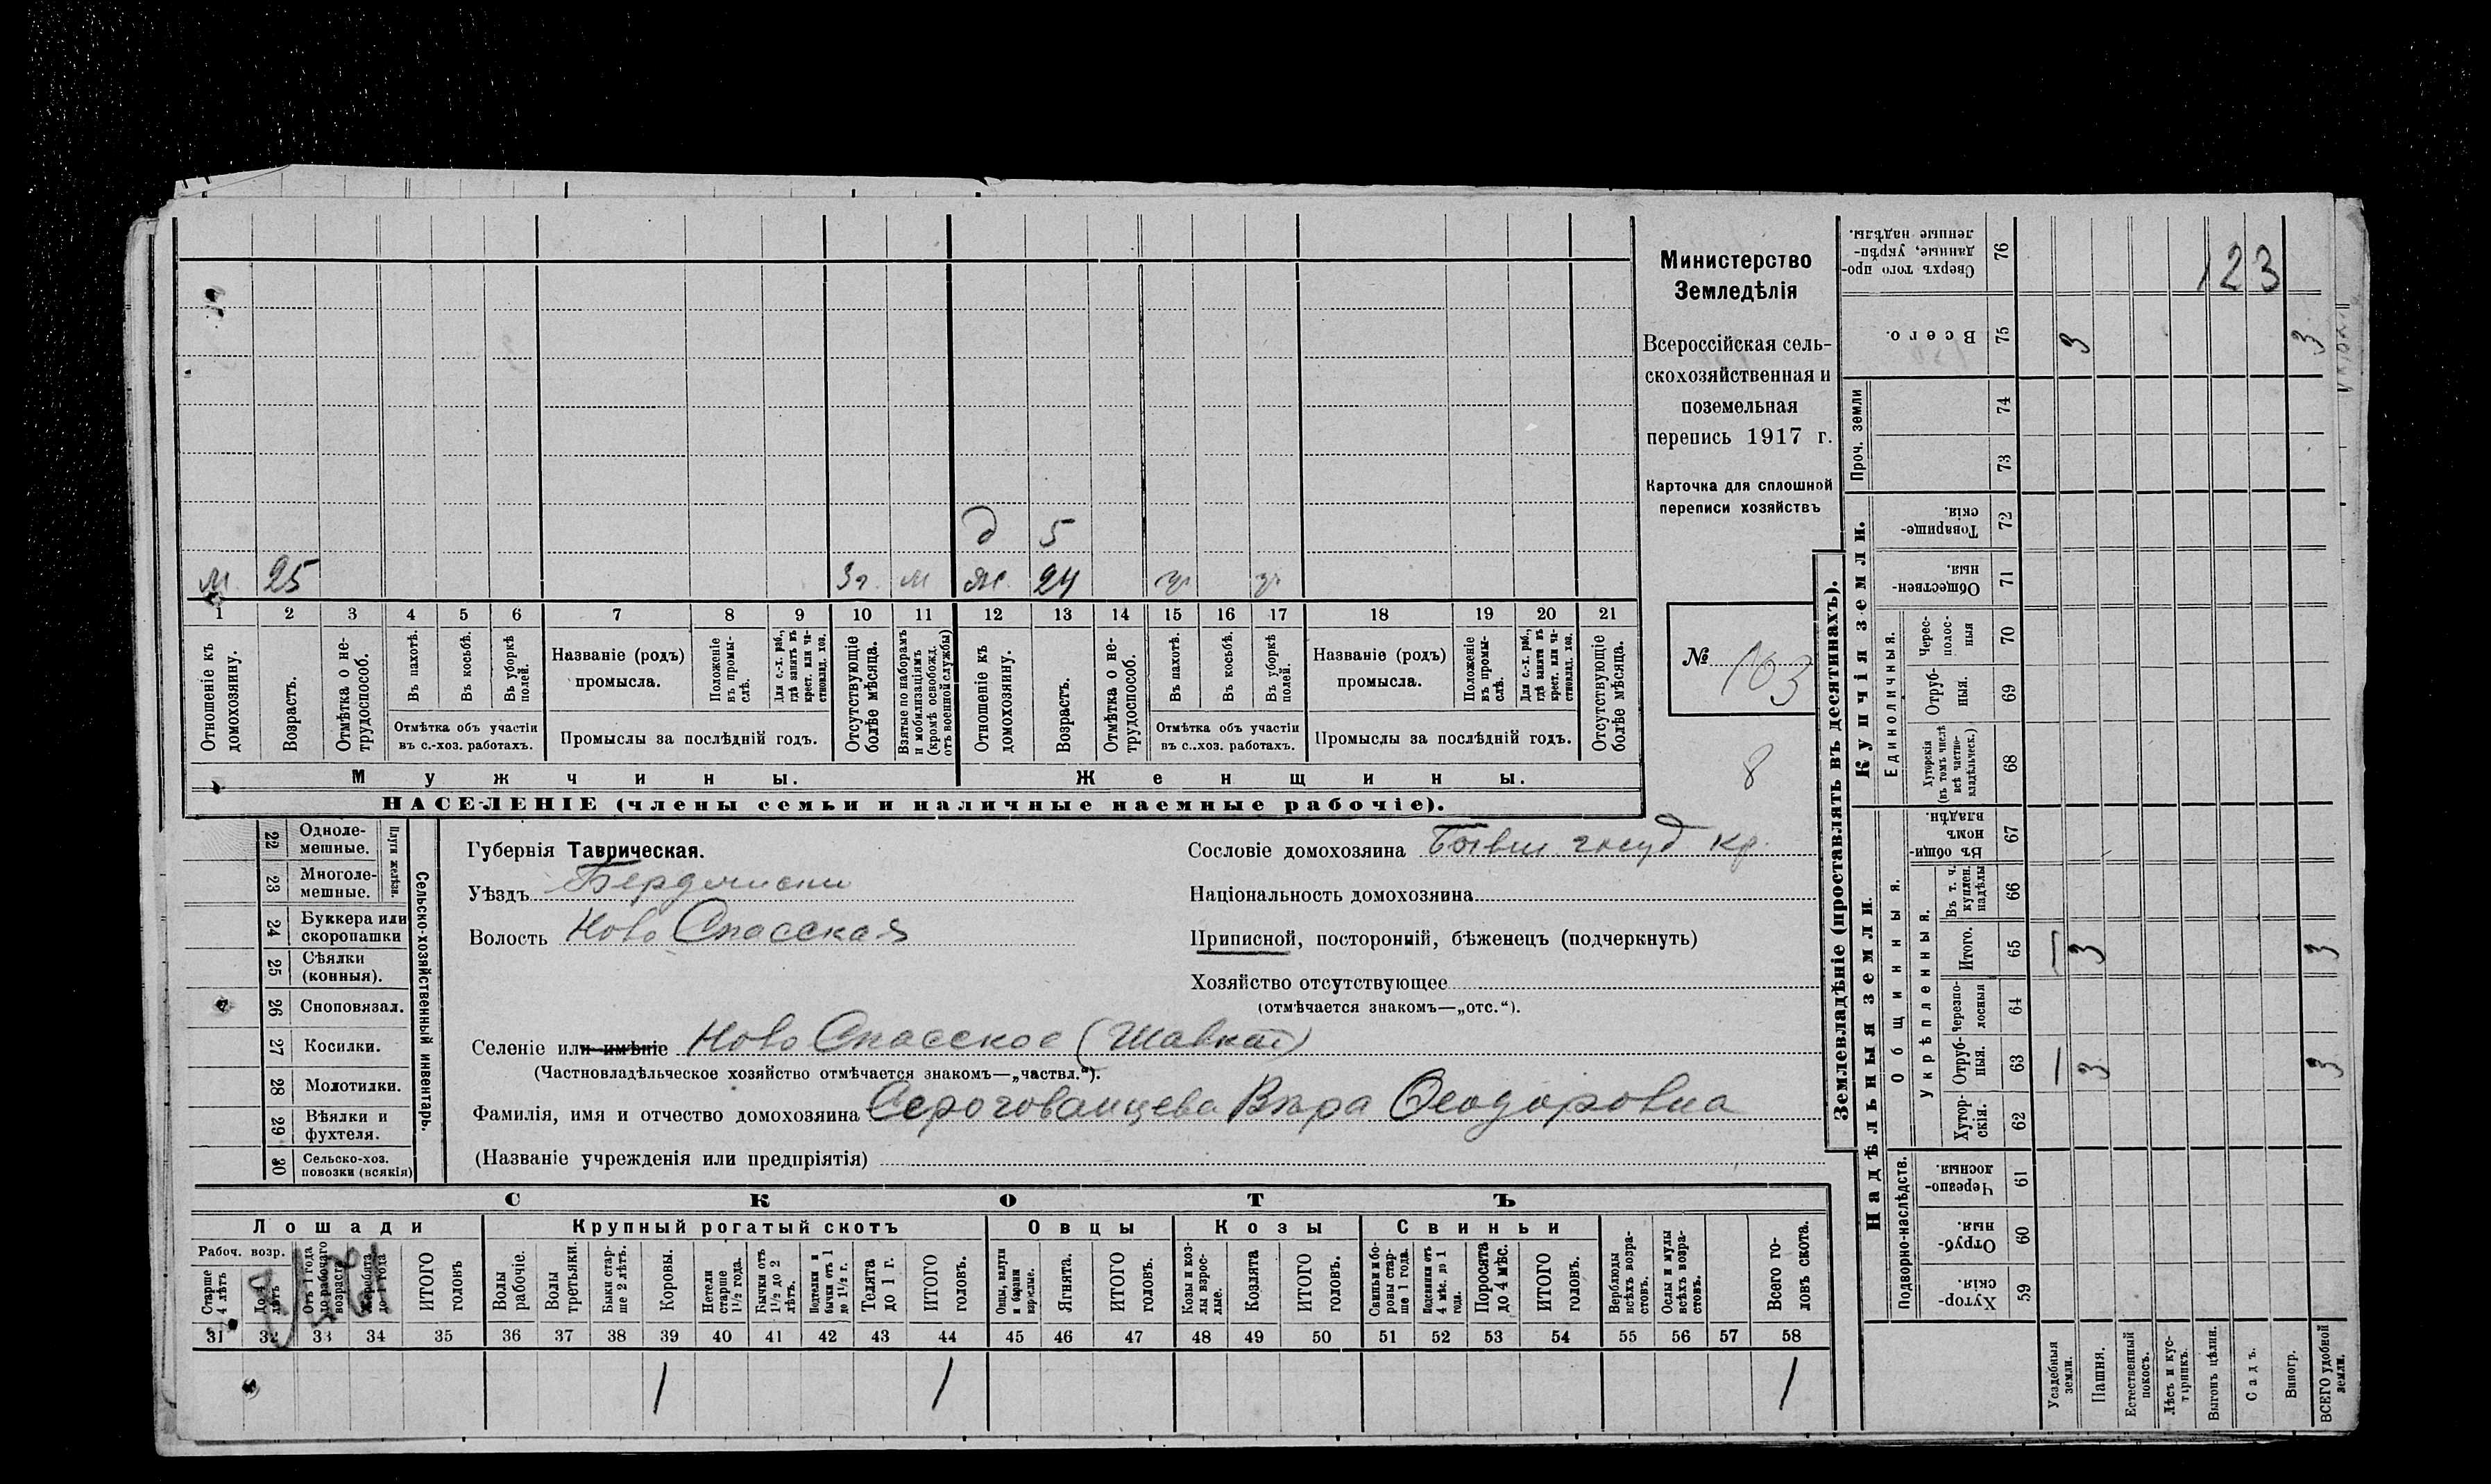 м. 25 3 г. м ж. 24 у у
д 5
1 2 3 4 5 6 7 8 9 10 11 12 13 14 15 16 17 18 19 20 21
Отношеніе къ домохозяину.
Возрастъ.
Отмѣтка о не-
трудоспособ.
Въ пахотѣ.
Въ косьбѣ.
Въ уборкѣ полей.
Отмѣтка объ участіи
въ с.-хоз. работахъ.
Названіе (родъ)
промысла.
Положеніе въ промы-
слѣ.
Для с.-х. раб., гдѣ занятъ въ крест. или ча-
стновлад. хоз.
Промыслы за послѣдній годъ.
Отсутствующіе болѣе мѣсяца.
Взятые по наборамъ и мобилизаціямъ (кромѣ освобожд. отъ военной службы)
Отношеніе къ домохозяину.
Возрастъ.
Отмѣтка о не-
трудоспособ.
Въ пахотѣ.
Въ косьбѣ.
Въ уборкѣ полей.
Отмѣтка объ участіи
въ с.-хоз. работахъ.
Названіе (родъ)
промысла.
Положеніе въ промы-
слѣ.
Для с.-х. раб., гдѣ занята въ крест. или ча-
стновлад. хоз.
Промыслы за послѣдній годъ.
Отсутствующіе болѣе мѣсяца.
Мужчины. Женщины.
НАСЕЛЕНІЕ (члены семьи и наличные наемные рабочіе).
Министерство
Земледѣлія
Всероссійская сель-
скохозяйственная и
поземельная
перепись 1917 г.
Карточка для сплошной
переписи хозяйствъ
№ 103
8
22 Одноле-
мешные.
23 Многоле-
мешные.
Плуги желѣзн.
24 Буккера или
скоропашки
25 Сѣялки
(конныя).
26 Сноповязал.
27 Косилки.
28 Молотилки.
29 Вѣялки и
фухтеля.
30 Сельско-хоз.
повозки (всякія)
Сельско-хозяйственный инвентарь.
Губернія Таврическая.
Уѣздъ Бердянскій
Волость Ново Спасская
Сословіе домохозяина Бывш. госуд кр.
Національность домохозяина
Приписной, посторонній, бѣженецъ (подчеркнуть)
Хозяйство отсутствующее
(отмѣчается знакомъ—„отс.“).
Селеніе или имѣніе Ново Спасское (Шавкай)
(Частновладѣльческое хозяйство отмѣчается знакомъ—„частвл.“).
Фамилія, имя и отчество домохозяина Серогованцева Вѣра Ѳеодоровна
(Названіе учрежденія или предпріятія)
СКОТЪ
Лошади Крупный рогатый скотъ Овцы Козы Свиньи
Рабоч. возр.
Старше 4 лѣтъ
До 4 лѣтъ
Отъ 1 года до рабочаго возраста
Жеребята до 1 года
ИТОГО головъ
Волы рабочіе.
Волы третьяки.
Быки стар-
ше 2 лѣтъ.
Коровы.
Нетели старше 1½ года.
Бычки отъ 1½ до 2 лѣтъ.
Подтелки и бычки отъ 1 до 1½ г.
Телята до 1 г.
ИТОГО головъ.
Овцы, валухи и бараны взрослые.
Ягнята.
ИТОГО головъ.
Козы и коз-
лы взрос-
лые.
Козлята
ИТОГО головъ.
Свиньи и бо-
ровы стар-
ше 1 года.
Подсвинки отъ 4 мѣс. до 1 года.
Поросята до 4 мѣс.
ИТОГО головъ.
Верблюды всѣхъ возра-
стовъ.
Ослы и мулы всѣхъ возра-
стовъ.
Всего го-
ловъ скота.
31 32 33 34 35 36 37 38 39 40 41 42 43 44 45 46 47 48 49 50 51 52 53 54 55 56 57 58
1 1 1
Землевладѣніе (проставлять въ десятинахъ).
Надѣльныя земли. Купчія земли. Проч. земли
Подворно-наслѣдств.
Общинныя.
Укрѣпленныя.
Единоличныя.
76 Сверхъ того про-
данные, укрѣп-
ленные надѣлы.
123
75 Всего. 3 3
74
73
72 Товарище-
скія.
71 Обществен-
ныя.
70 Черес-
полос-
ныя
69 Отруб-
ныя.
68 Хуторскія
(въ томъ числѣ
всѣ частно-
владѣльческ.)
67 Въ общи-
номъ
владѣн.
66 Въ т. ч.
куплен.
надѣлы
65 Итого. 1 3 3
64 Черезпо-
лосныя
63 Отруб-
ныя. 1 3 3
62 Хутор-
скія.
61 Черезпо-
лосныя.
60 Отруб-
ныя.
59 Хутор-
скія.
Усадебныя земли.
Пашня.
Естественный покосъ.
Лѣсъ и кус-
тарникъ.
Выгонъ цѣлин.
Садъ.
Виногр.
ВСЕГО удобной земли.